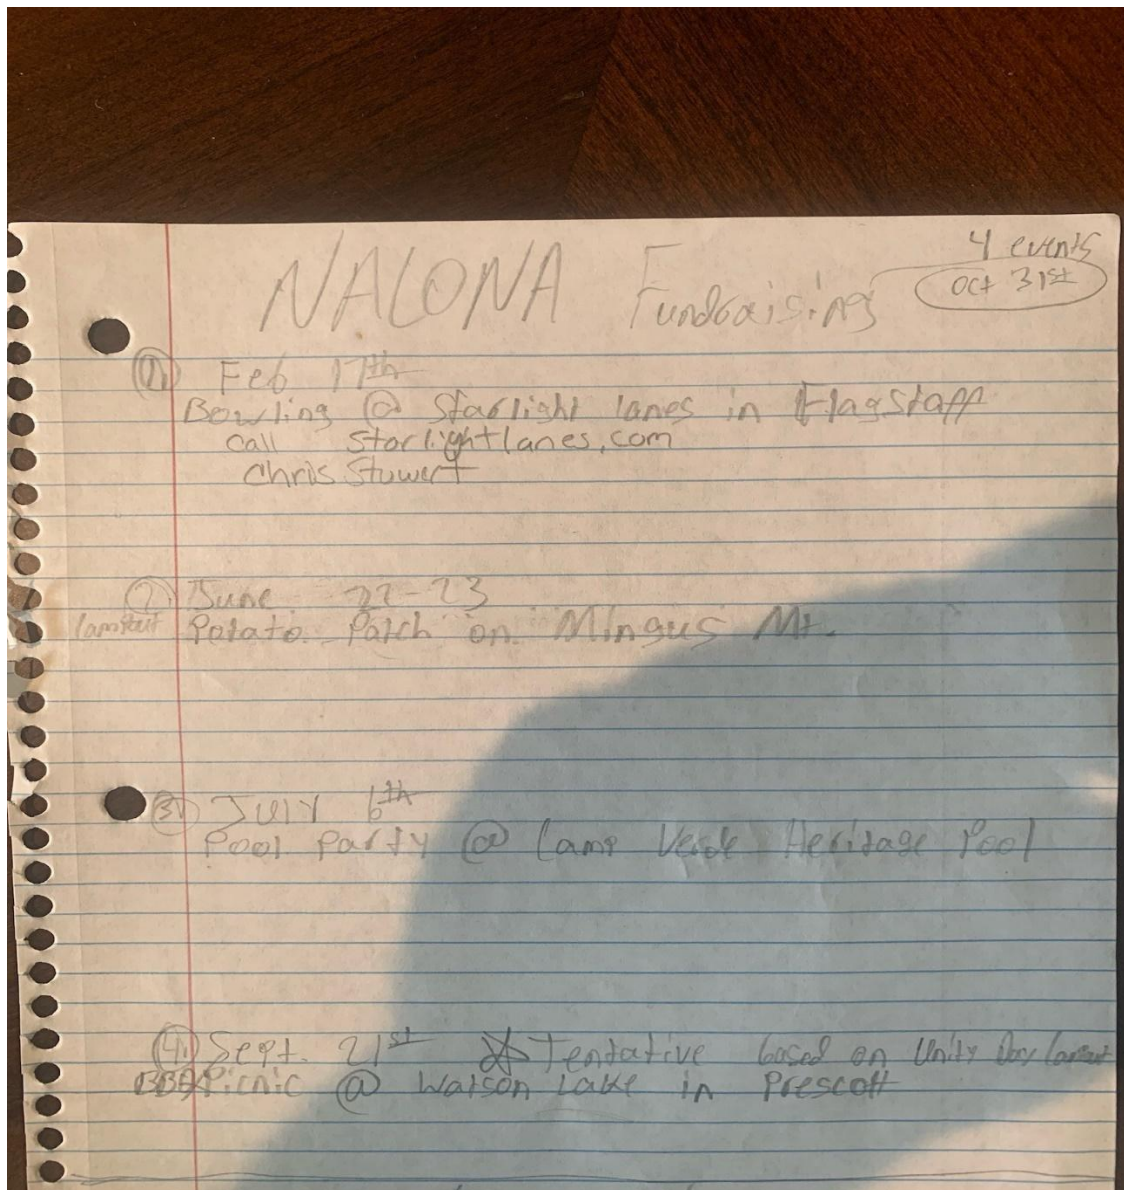 4 events
NALONA Fundraising
Oct 31st
1. Feb 17th
Bowling @ Starlight lanes in Flagstaff
call starlightlanes.com
Chris Stuwert
2. June 22-23
Potato Patch on Mingus Mt.
3. JULY 6th
Pool party @ Camp Verde Heritage Pool
4. Sept. 21st ☆ Tentative based on Unity Day
BBQ Picnic @ Watson Lake in Prescott